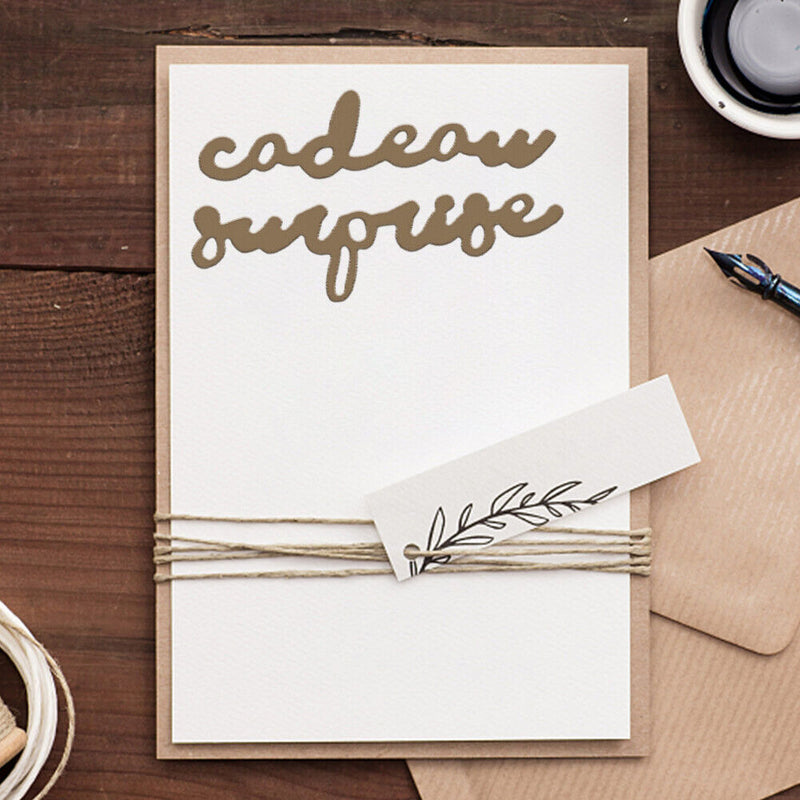 cadeau
surprise